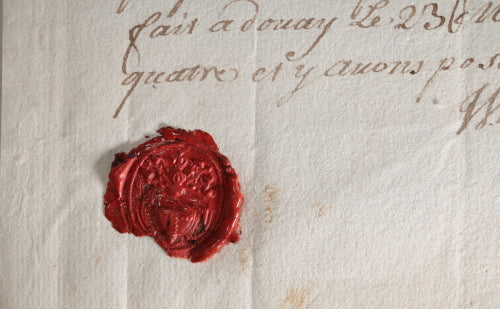 fait a douay Le 23
quatre et y avons pos